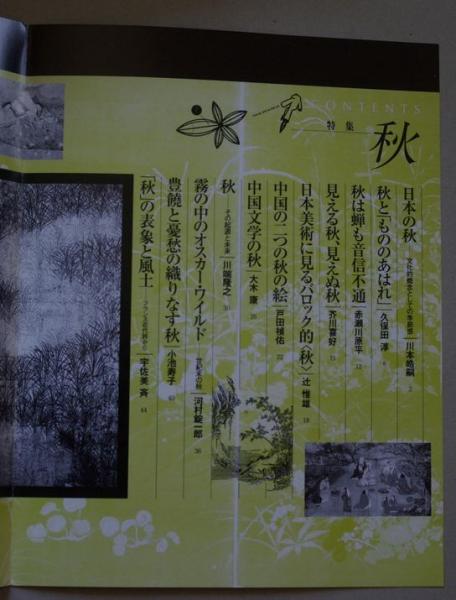 CONTENTS
特集
秋
日本の秋 文化的概念としての季節感 川本皓嗣
秋と「もののあはれ」 久保田 淳
秋は蝉も音信不通 赤瀬川原平 12
見える秋、見えぬ秋 芥川喜好 15
日本美術に見るバロック的〈秋〉 辻 惟雄 18
中国の二つの秋の絵 戸田禎佑 22
中国文学の秋 大木 康
秋 その起源と未来 川端隆之 31
霧の中のオスカー・ワイルド 世紀末の秋 河村錠一郎 36
豊饒と憂愁の織りなす秋 小池寿子 40
「秋」の表象と風土 宇佐美 斉 44